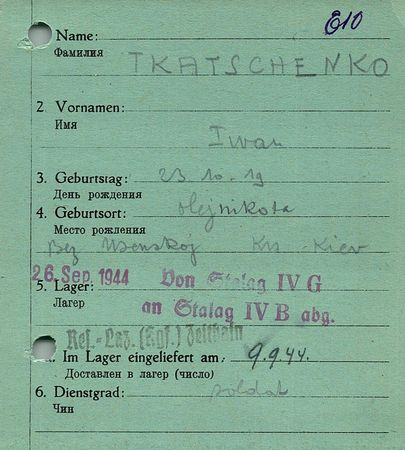 610
Name:
Фамилия
TKATSCHENKO
2. Vornamen:
Имя
Iwan
3. Geburtstag: 23 10. 19
День рождения
4. Geburtsort: Olejnikota
Место рождения
Bez Usenskoj Krs - Kiev
26. Sep. 1944 Von Stalag IV G
5. Lager:
Лагер an Stalag IV B abg.
Res.-Laz. (Kgf.) Zeithain
Im Lager eingeliefert am: 9.9.44.
Доставлен в лагер (число)
6. Dienstgrad: soldat
Чин